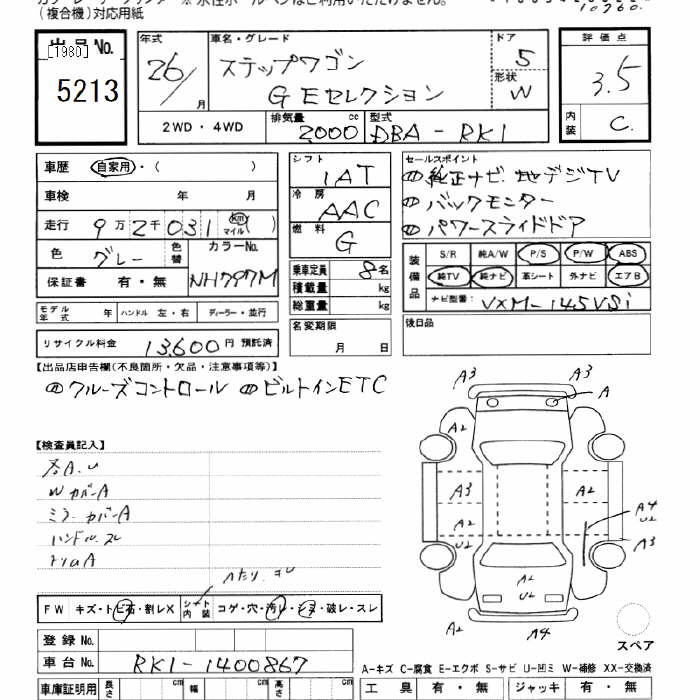 (複合機)対応用紙
出品No.
[1980]
5213
年式 26/ 月
車名・グレード
ステップワゴン
G Eセレクション
ドア 5
形状 W
2WD・4WD
排気量 2000 cc
型式 DBA-RK1
評価点
3.5
内装 C
車歴 自家用・( )
車検 年 月
走行 9万2千031 km マイル ( )
色 グレー 色替
カラーNo. NH797M
保証書 有・無
モデル年式 年 ハンドル 左・右 ディーラー・並行
リサイクル料金 13,600円 預託済
シフト IAT
冷房 AAC
燃料 G
乗車定員 8名
積載量 kg
総重量 kg
名変期限
月 日
セールスポイント
純正ナビ 地デジTV
バックモニター
パワースライドドア
装備品
S/R 純A/W P/S P/W ABS
純TV 純ナビ 革シート 外ナビ エアB
ナビ型番: VXM-145VSi
後日品
【出品店申告欄(不良箇所・欠品・注意事項等)】
クルーズコントロール ビルトインETC
【検査員記入】
各A.U
WカバーA
ミラーカバーA
ハンドルスレ
トリムA
FW キズ・トビ石・割レX
シート内装 コゲ・穴・汚レ・シミ・破レ・スレ
登録No.
車台No. RK1-1400867
車庫証明用 長さ cm 幅 cm 高さ cm
A3 A3
A
A2
A3 A2
A4
U2
A2
U2
A3
A2
U2
A2 A4
スペア
A-キズ C-腐食 E-エクボ S-サビ U-凹ミ W-補修 XX-交換済
工具 有・無 ジャッキ 有・無